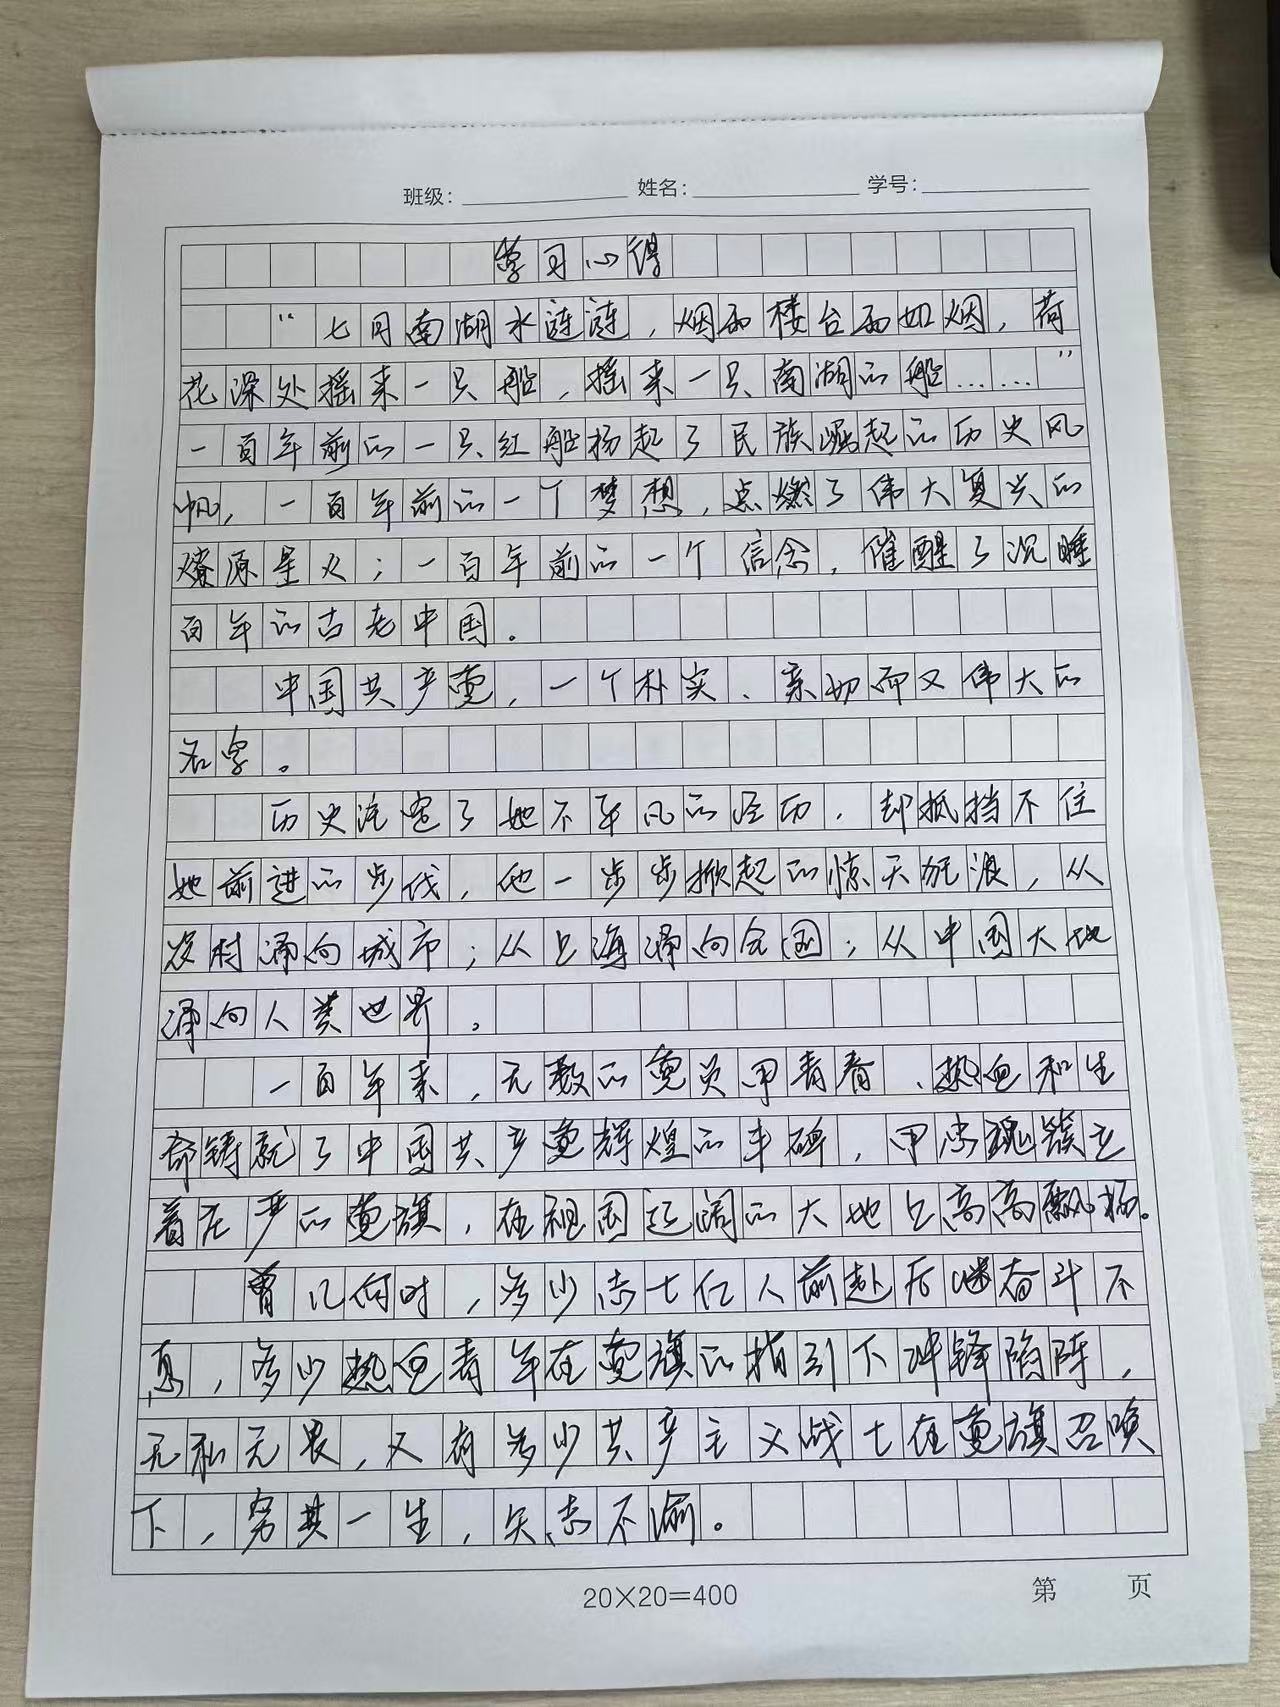 班级： 姓名： 学号：
学习心得
“七月南湖水涟涟，烟雨楼台雨如烟，荷
花深处摇来一只船，摇来一只南湖的船……”
一百年前的一只红船扬起了民族崛起的历史风
帆，一百年前的一个梦想，点燃了伟大复兴的
燎原星火；一百年前的一个信念，催醒了沉睡
百年的古老中国。
中国共产党，一个朴实、亲切而又伟大的
名字。
历史沧桑了她不平凡的经历，却抵挡不住
她前进的步伐，他一步步掀起的惊天骇浪，从
农村涌向城市；从上海涌向全国；从中国大地
涌向人类世界。
一百年来，无数的党员用青春、热血和生
命铸就了中国共产党辉煌的丰碑，用忠魂簇立
着庄严的党旗，在祖国辽阔的大地上高高飘扬。
曾几何时，多少志士仁人前赴后继奋斗不
息，多少热血青年在党旗的指引下冲锋陷阵，
无私无畏，又有多少共产主义战士在党旗召唤
下，穷其一生，矢志不渝。
20×20=400
第 页